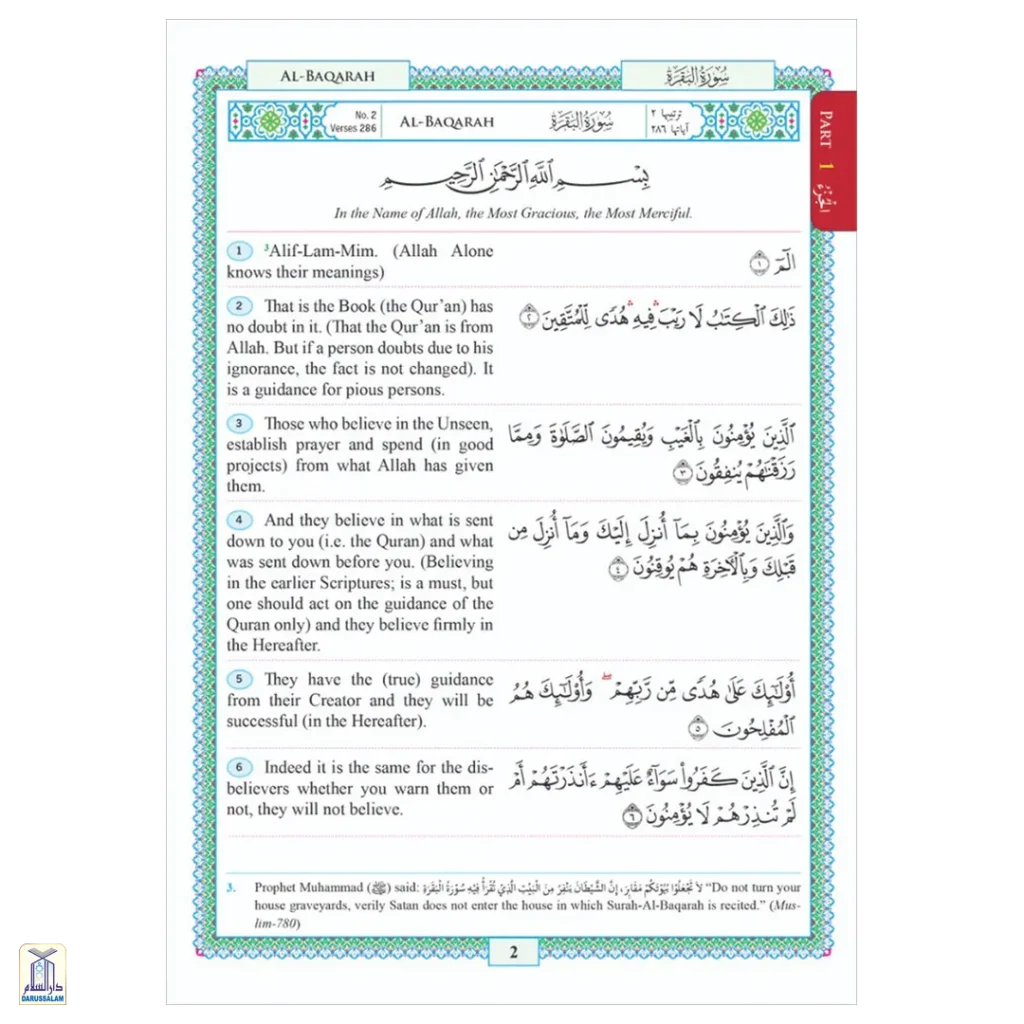 AL-BAQARAH
سُورَةُ البَقَرَةِ
No. 2
Verses 286
AL-BAQARAH
سُورَةُ البَقَرَةِ
ترتيبها ٢
آياتها ٢٨٦
PART 1 الجُزْءُ
بِسْمِ ٱللَّهِ ٱلرَّحْمَٰنِ ٱلرَّحِيمِ
In the Name of Allah, the Most Gracious, the Most Merciful.
1 ³Alif-Lam-Mim. (Allah Alone
knows their meanings)
الٓمٓ ١
2 That is the Book (the Qur’an) has
no doubt in it. (That the Qur’an is from
Allah. But if a person doubts due to his
ignorance, the fact is not changed). It
is a guidance for pious persons.
ذَٰلِكَ ٱلْكِتَٰبُ لَا رَيْبَ ۛ فِيهِ ۛ هُدًى لِّلْمُتَّقِينَ ٢
3 Those who believe in the Unseen,
establish prayer and spend (in good
projects) from what Allah has given
them.
ٱلَّذِينَ يُؤْمِنُونَ بِٱلْغَيْبِ وَيُقِيمُونَ ٱلصَّلَوٰةَ وَمِمَّا
رَزَقْنَٰهُمْ يُنفِقُونَ ٣
4 And they believe in what is sent
down to you (i.e. the Quran) and what
was sent down before you. (Believing
in the earlier Scriptures; is a must, but
one should act on the guidance of the
Quran only) and they believe firmly in
the Hereafter.
وَٱلَّذِينَ يُؤْمِنُونَ بِمَآ أُنزِلَ إِلَيْكَ وَمَآ أُنزِلَ مِن
قَبْلِكَ وَبِٱلْءَاخِرَةِ هُمْ يُوقِنُونَ ٤
5 They have the (true) guidance
from their Creator and they will be
successful (in the Hereafter).
أُو۟لَٰٓئِكَ عَلَىٰ هُدًى مِّن رَّبِّهِمْ ۖ وَأُو۟لَٰٓئِكَ هُمُ
ٱلْمُفْلِحُونَ ٥
6 Indeed it is the same for the dis-
believers whether you warn them or
not, they will not believe.
إِنَّ ٱلَّذِينَ كَفَرُوا۟ سَوَآءٌ عَلَيْهِمْ ءَأَنذَرْتَهُمْ أَمْ
لَمْ تُنذِرْهُمْ لَا يُؤْمِنُونَ ٦
3. Prophet Muhammad (ﷺ) said: لَا تَجْعَلُوْا بُيُوْتَكُمْ مَقَابِرَ، إِنَّ الشَّيْطَانَ يَنْفِرُ مِنَ الْبَيْتِ الَّذِي تُقْرَأُ فِيْهِ سُوْرَةُ الْبَقَرَةِ “Do not turn your
house graveyards, verily Satan does not enter the house in which Surah-Al-Baqarah is recited.” (Mus-
lim-780)
2
دارالسلام
DARUSSALAM